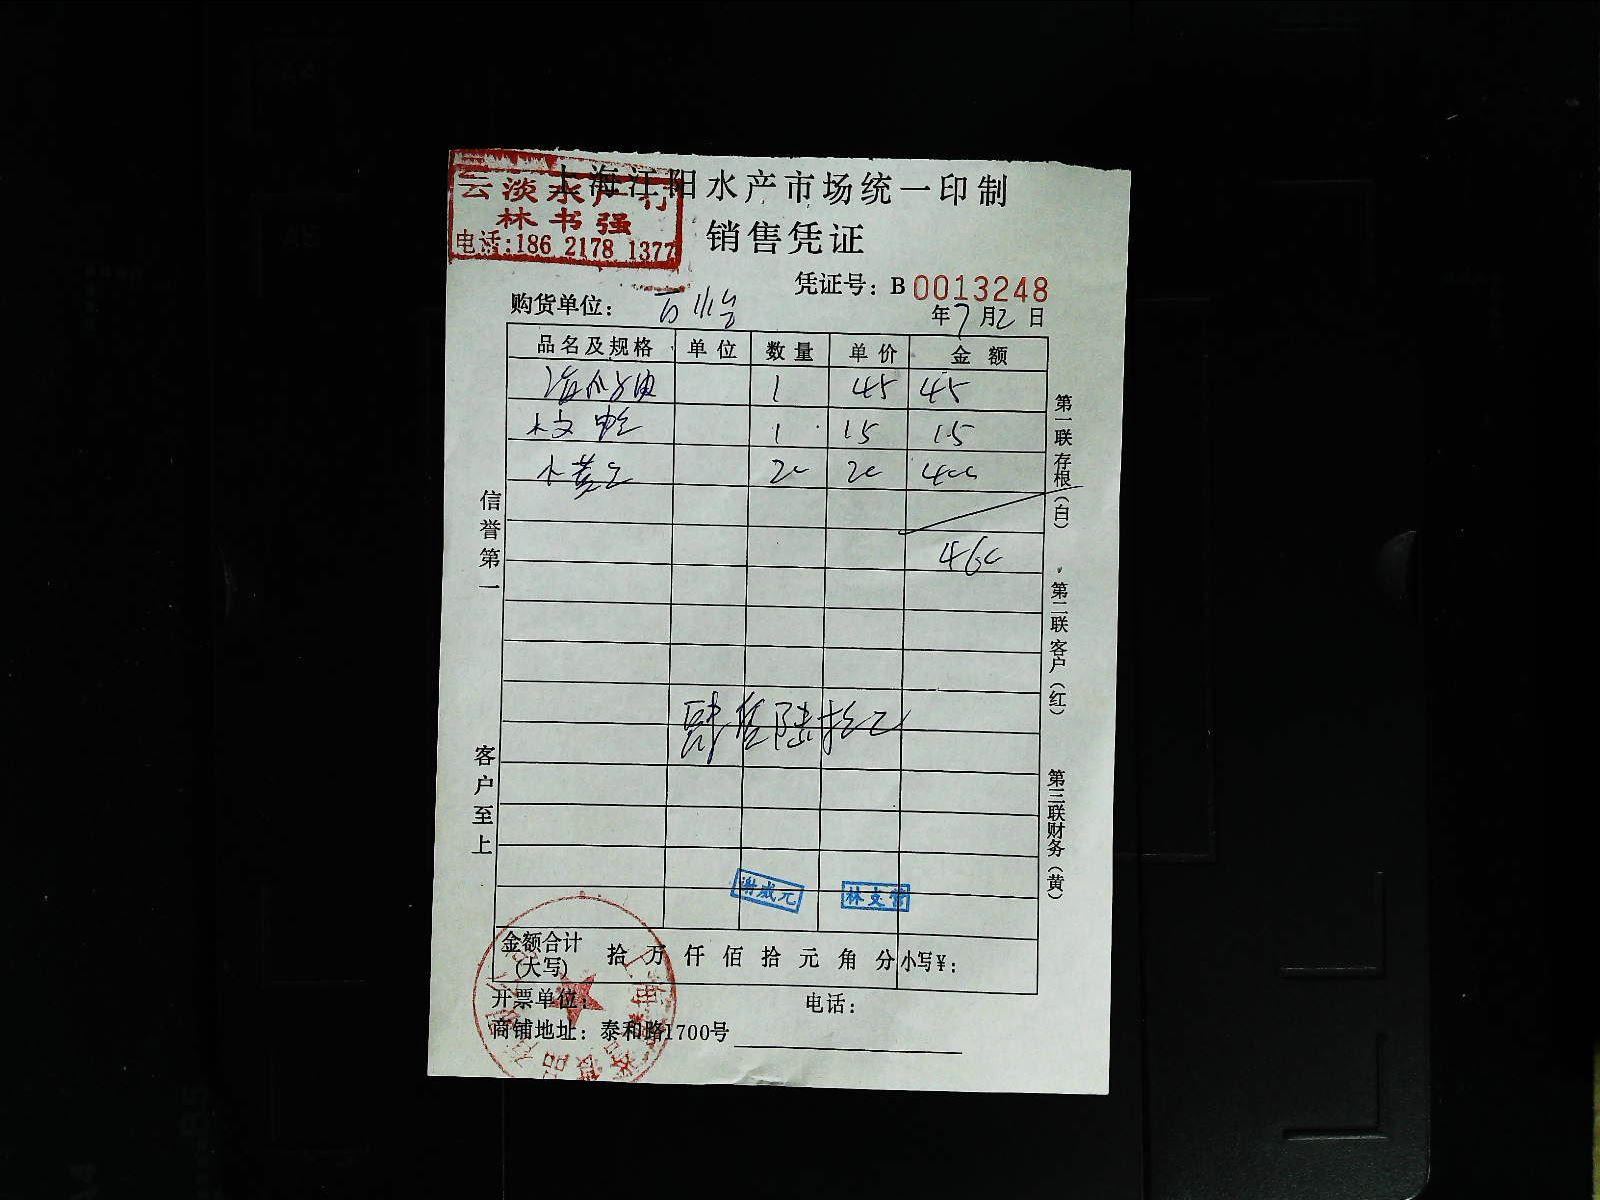 上海江阳水产市场统一印制
云淡水产行
林书强
电话:186 2178 1377
销售凭证
凭证号: B 0013248
购货单位:
年 7 月 2 日
品名及规格 单位 数量 单价 金额
1 45 45
1 15 15
小黄 20 20 400
460
肆佰陆拾元
信誉第一
客户至上
第一联 存根 (白)
第二联 客户 (红)
第三联 财务 (黄)
金额合计 (大写) 拾 万 仟 佰 拾 元 角 分 小写¥:
开票单位: 电话:
商铺地址: 泰和路1700号